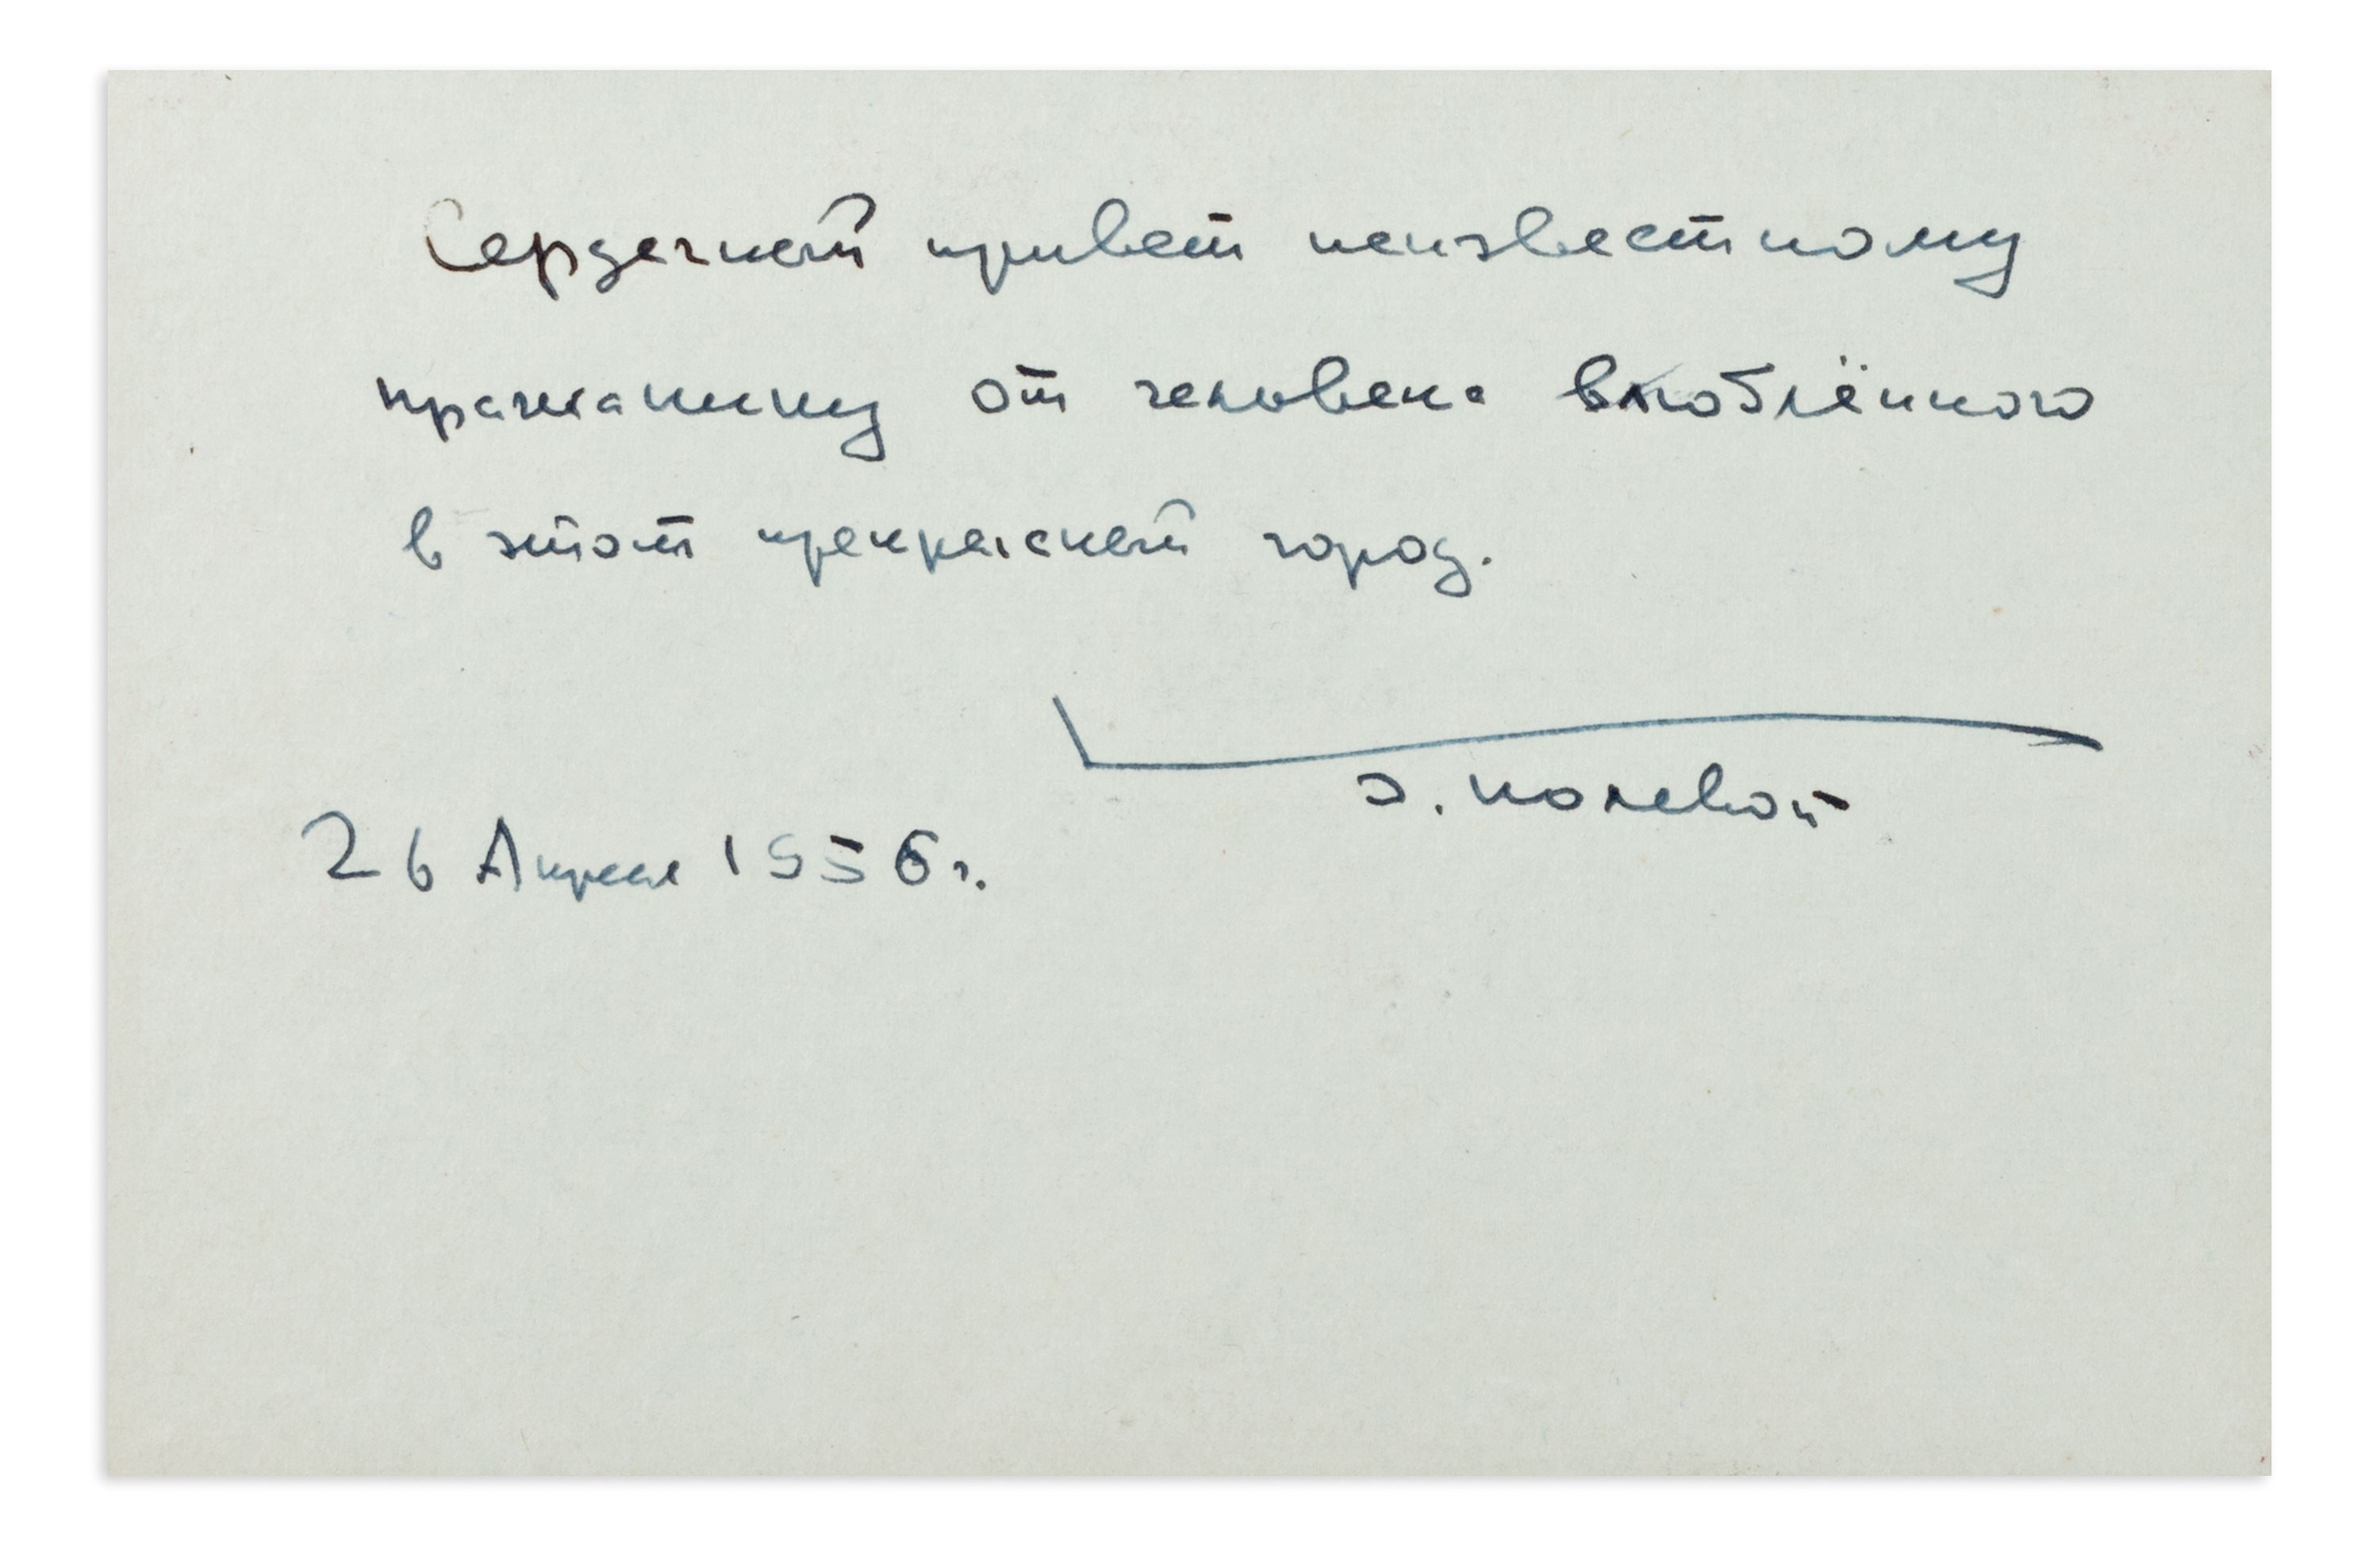 Сердечный привет неизвестному
пражанину от человека влюблённого
в этот прекрасный город.
Б. Полевой
26 Апреля 1956 г.